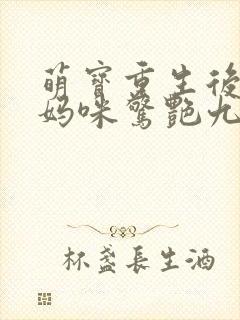 萌寶重生後
媽咪驚艷九
杯盞長生酒